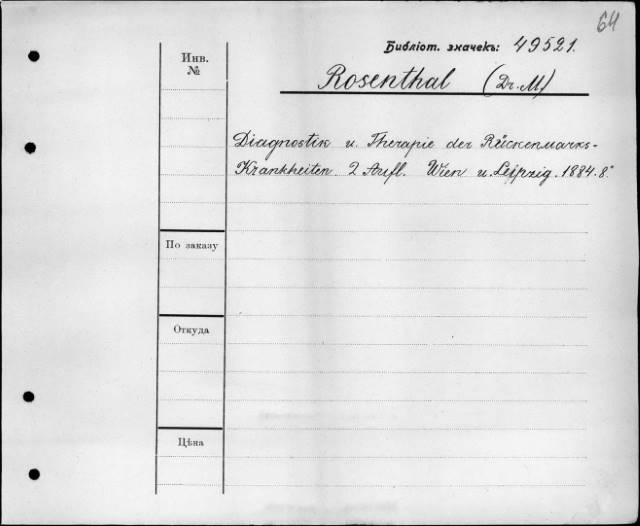 64
Библіот. значекъ: 49521.
Инв.
№
Rosenthal (Dr. M.)
Diagnostik u. Therapie der Rückenmarks-
Krankheiten. 2 Aufl. Wien u. Leipzig. 1884. 8°
По заказу
Откуда
Цѣна